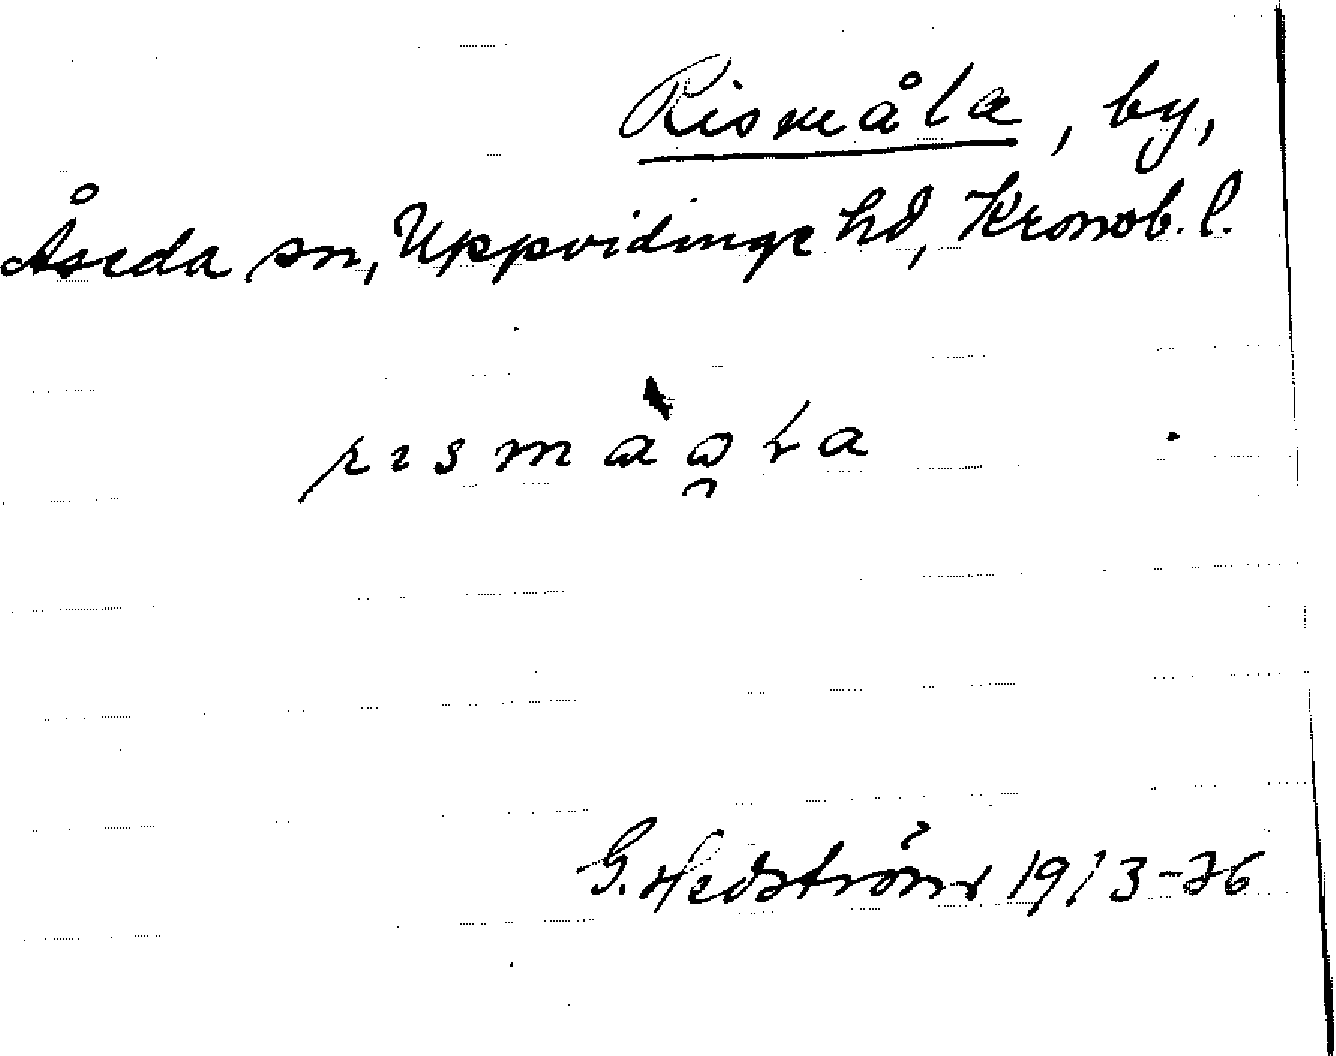 Rismåla, by,
Åseda sn, Uppvidinge hd, Kronob. l.
G. Hedström 1913-26